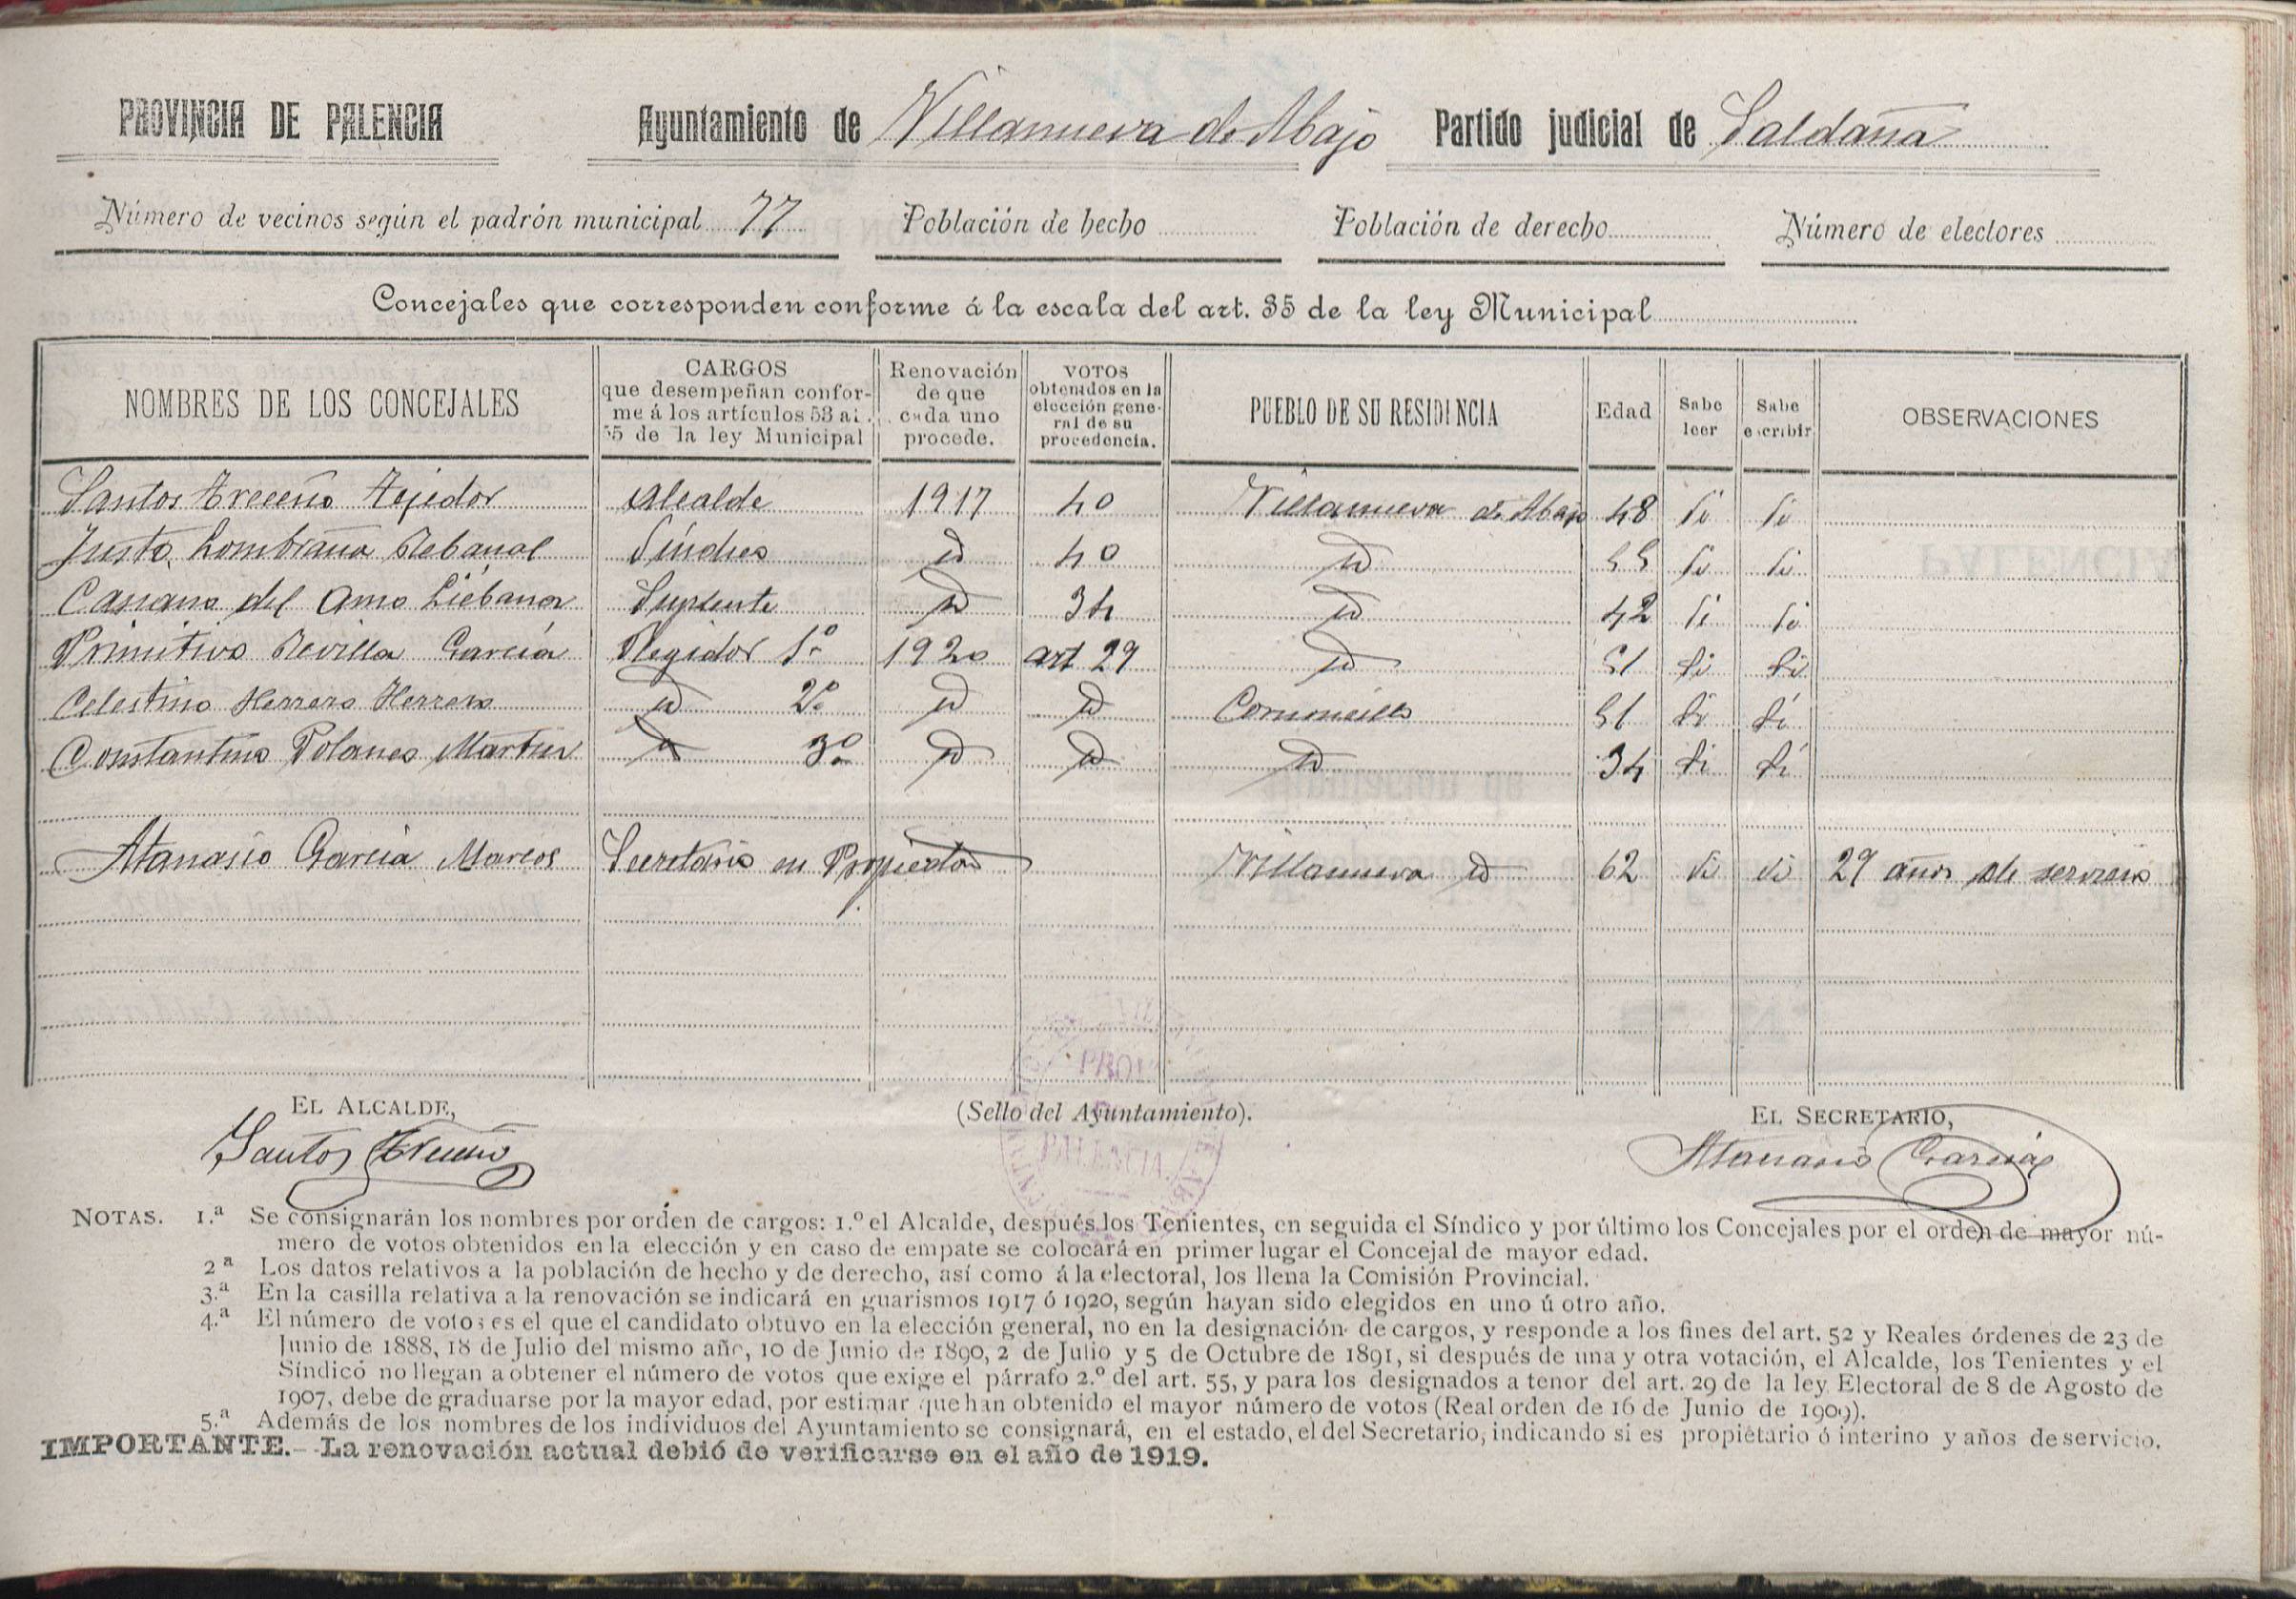 PROVINCIA DE PALENCIA Ayuntamiento de Villanueva de Abajo Partido judicial de Saldaña
Número de vecinos según el padrón municipal 77 Población de hecho Población de derecho Número de electores
Concejales que corresponden conforme á la escala del art. 35 de la ley Municipal
NOMBRES DE LOS CONCEJALES CARGOS que desempeñan conforme á los artículos 53 al 55 de la ley Municipal Renovación de que cada uno procede. VOTOS obtenidos en la elección general de su procedencia. PUEBLO DE SU RESIDENCIA Edad Sabe leer Sabe escribir OBSERVACIONES
Santos Treceño Tejedor Alcalde 1917 40 Villanueva de Abajo 48 si si
Justo Lombraña Rebanal Síndico id 40 id 55 si si
Casiano del Amo Liébana Suplente id 34 id 42 si si
Primitivo Revilla García Regidor 1º 1920 art 29 id 51 si si
Celestino Herrero Herrero id 2º id id Cornoncillo 51 si si
Constantino Polanco Martin id 3º id id id 34 si si
Atanasio García Marcos Secretario en Propiedad Villanueva id 62 si si 29 años de servicio
EL ALCALDE, (Sello del Ayuntamiento). EL SECRETARIO,
Santos Treceño Atanasio García
PALENCIA
NOTAS. 1.ª Se consignarán los nombres por orden de cargos: 1.º el Alcalde, después los Tenientes, en seguida el Síndico y por último los Concejales por el orden de mayor nú-
mero de votos obtenidos en la elección y en caso de empate se colocará en primer lugar el Concejal de mayor edad.
2ª Los datos relativos a la población de hecho y de derecho, así como á la electoral, los llena la Comisión Provincial.
3.ª En la casilla relativa a la renovación se indicará en guarismos 1917 ó 1920, según hayan sido elegidos en uno ú otro año.
4.ª El número de votos es el que el candidato obtuvo en la elección general, no en la designación de cargos, y responde a los fines del art. 52 y Reales órdenes de 23 de
Junio de 1888, 18 de Julio del mismo año, 10 de Junio de 1890, 2 de Julio y 5 de Octubre de 1891, si después de una y otra votación, el Alcalde, los Tenientes y el
Síndico no llegan a obtener el número de votos que exige el párrafo 2.º del art. 55, y para los designados a tenor del art. 29 de la ley Electoral de 8 de Agosto de
1907, debe de graduarse por la mayor edad, por estimar que han obtenido el mayor número de votos (Real orden de 16 de Junio de 1909).
5.ª Además de los nombres de los individuos del Ayuntamiento se consignará, en el estado, el del Secretario, indicando si es propietario ó interino y años de servicio.
IMPORTANTE.—La renovación actual debió de verificarse en el año de 1919.